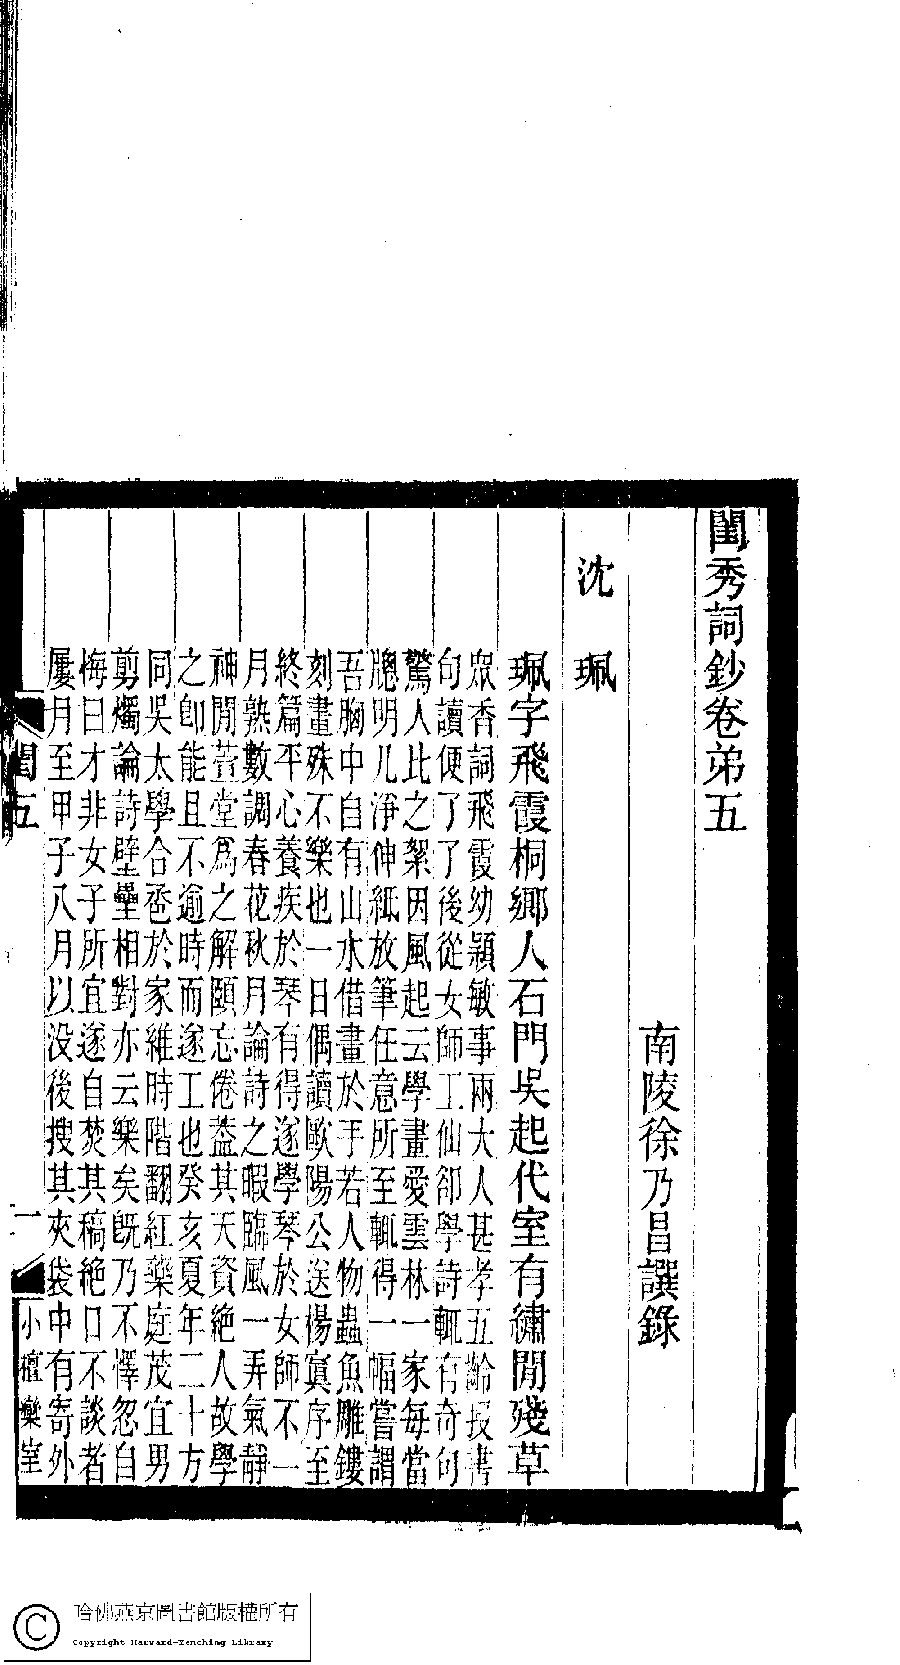 閨秀詞鈔卷弟五
南陵徐乃昌譔錄
沈珮
珮字飛霞桐鄉人石門吳起代室有繡閒殘草
眾香詞飛霞幼穎敏事兩大人甚孝五齡授書
句讀便了了後從女師工仙卻學詩輒有奇句
驚人比之絮因風起云學畫愛雲林一家每當
聰明儿淨伸紙放筆任意所至輒得一幅嘗謂
吾胸中自有山水借畫於手若人物蟲魚雕鏤
刻畫殊不樂也一日偶讀歐陽公送楊寘序至
終篇平心養疾於琴有得遂學琴於女師不一
月熟數調春花秋月論詩之暇臨風一弄氣靜
神閒萱堂爲之解頤忘倦葢其天資絶人故學
之卽能且不逾時而遂工也癸亥夏年二十方
同吳太學合巹於家維時階翻紅藥庭茂宜男
剪燭論詩壁壘相對亦云樂矣旣乃不懌忽自
悔曰才非女子所宜遂自焚其稿絶口不談者
屢月至甲子八月以没後搜其夾袋中有寄外
閨五
一
小檀欒室
哈佛燕京圖書館版權所有
Copyright Harvard-Yenching Library